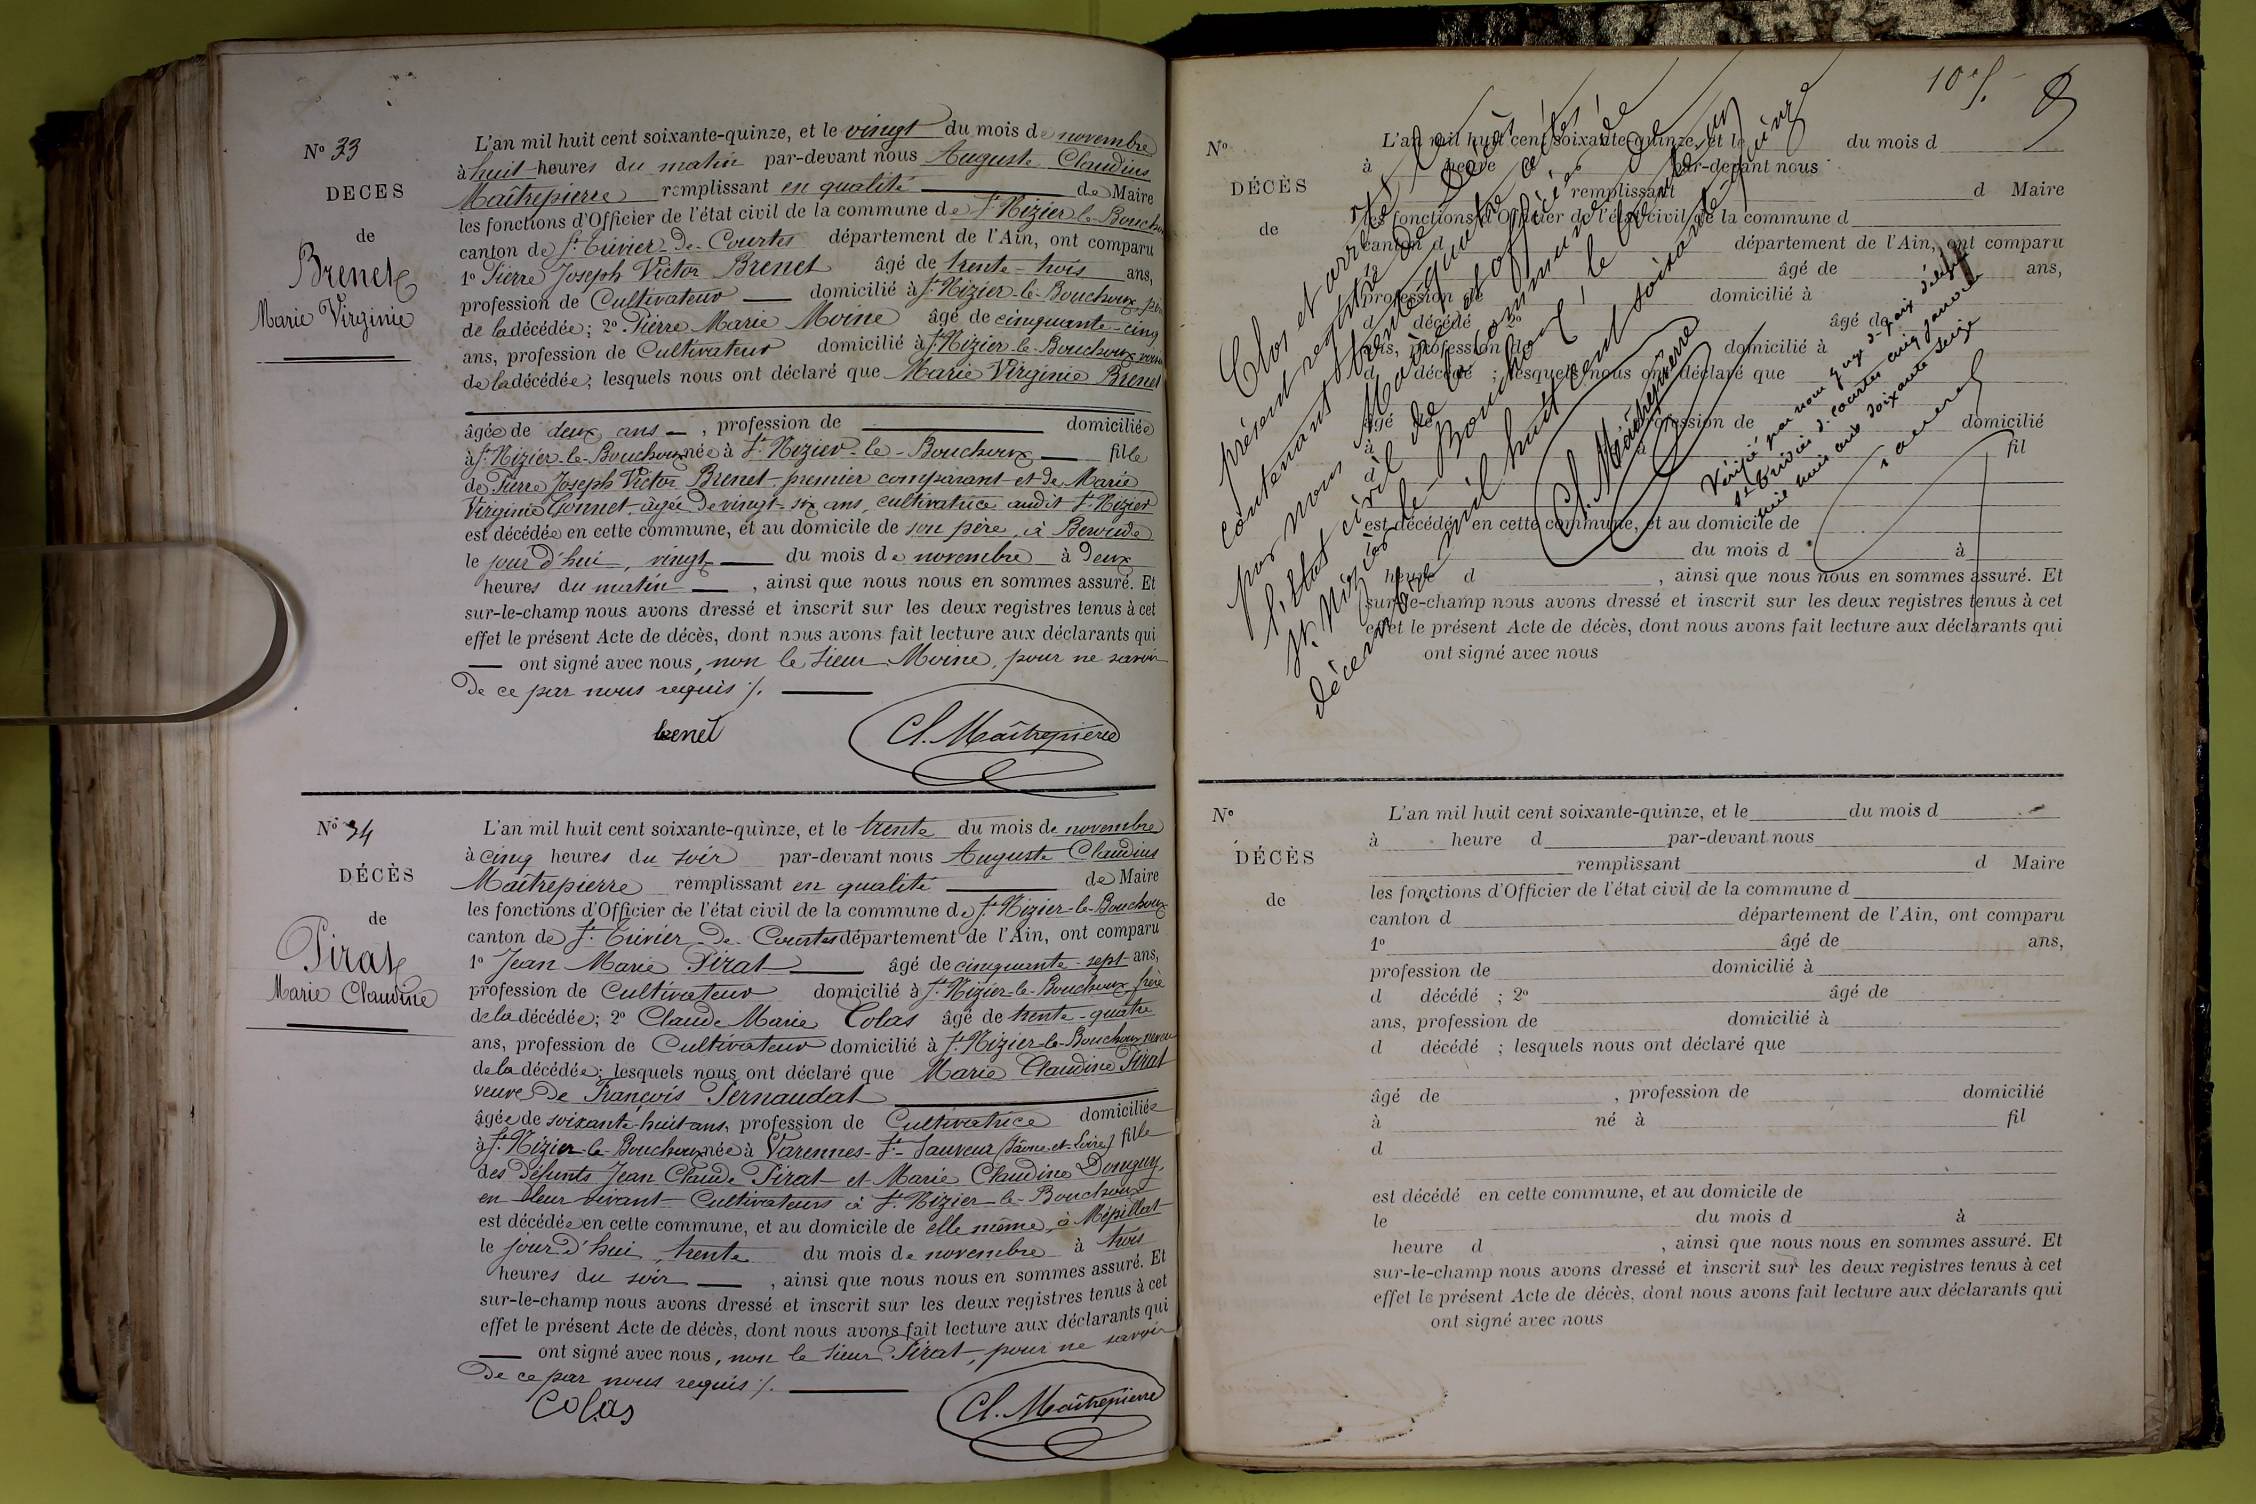 N° 33
DECES
de
Brenet
Marie Virginie
L'an mil huit cent soixante-quinze, et le vingt du mois de novembre
à huit heures du matin par-devant nous Auguste Claudius
Maîtrepierre remplissant en qualité de Maire
les fonctions d'Officier de l'état civil de la commune de St Nizier-le-Bouchoux
canton de St Trivier-de-Courtes département de l'Ain, ont comparu
1° Pierre Joseph Victor Brenet âgé de trente-trois ans,
profession de Cultivateur domicilié à St Nizier-le-Bouchoux, père
de la décédée; 2° Pierre Marie Moine âgé de cinquante-cinq
ans, profession de Cultivateur domicilié à St Nizier-le-Bouchoux, voisin
de la décédée; lesquels nous ont déclaré que Marie Virginie Brenet
âgée de deux ans, profession de domiciliée
à St Nizier-le-Bouchoux née à St Nizier-le-Bouchoux fille
de Pierre Joseph Victor Brenet premier comparant et de Marie
Virginie Gonnet, âgée de vingt-six ans, cultivatrice audit St Nizier
est décédée en cette commune, et au domicile de son père, à
le jour d'hui, vingt du mois de novembre à deux
heures du matin, ainsi que nous nous en sommes assuré. Et
sur-le-champ nous avons dressé et inscrit sur les deux registres tenus à cet
effet le présent Acte de décès, dont nous avons fait lecture aux déclarants qui
ont signé avec nous, non le sieur Moine, pour ne savoir
de ce par nous requis ./.
brenet Cl. Maîtrepierre
N° 34
DÉCÈS
de
Pirat
Marie Claudine
L'an mil huit cent soixante-quinze, et le trente du mois de novembre
à cinq heures du soir par-devant nous Auguste Claudius
Maîtrepierre remplissant en qualité de Maire
les fonctions d'Officier de l'état civil de la commune de St Nizier-le-Bouchoux
canton de St Trivier-de-Courtes département de l'Ain, ont comparu
1° Jean Marie Pirat âgé de cinquante-sept ans,
profession de Cultivateur domicilié à St Nizier-le-Bouchoux, frère
de la décédée; 2° Claude Marie Colas âgé de trente-quatre
ans, profession de Cultivateur domicilié à St Nizier-le-Bouchoux, neveu
de la décédée; lesquels nous ont déclaré que Marie Claudine Pirat
veuve de François Pernaudat
âgée de soixante-huit ans, profession de Cultivatrice domiciliée
à St Nizier-le-Bouchoux née à Varennes-St-Sauveur (Saône-et-Loire) fille
des défunts Jean Claude Pirat et Marie Claudine Donguy,
en leur vivant Cultivateurs à St Nizier-le-Bouchoux
est décédée en cette commune, et au domicile de elle même, à Mépillat
le jour d'hui, trente du mois de novembre à trois
heures du soir, ainsi que nous nous en sommes assuré. Et
sur-le-champ nous avons dressé et inscrit sur les deux registres tenus à cet
effet le présent Acte de décès, dont nous avons fait lecture aux déclarants qui
ont signé avec nous, non le sieur Pirat, pour ne savoir
de ce par nous requis ./.
Colas Cl. Maîtrepierre
10e f.
N°
DÉCÈS
de
L'an mil huit cent soixante-quinze, et le du mois d
à heure par-devant nous
remplissant d Maire
les fonctions d'Officier de l'état civil de la commune d
canton d département de l'Ain, ont comparu
1° âgé de ans,
profession de domicilié à
d décédé 2° âgé de
ans, profession de domicilié à
d décédé ; lesquels nous ont déclaré que
âgé de profession de domicilié
à à fil
d
est décédé en cette commune, et au domicile de
du mois d à
heure d , ainsi que nous nous en sommes assuré. Et
sur-le-champ nous avons dressé et inscrit sur les deux registres tenus à cet
effet le présent Acte de décès, dont nous avons fait lecture aux déclarants qui
ont signé avec nous
Clos et arrêté le
présent registre de décès
contenant trente-quatre actes
par nous Maire et officier de
l'état civil de la commune de
St Nizier le Bouchoux, le trente un
décembre mil huit cent soixante quinze
Cl. Maîtrepierre
Vérifié par nous juge de paix
St Trivier de Courtes cinq janvier
mil huit cent soixante seize
N°
DÉCÈS
de
L'an mil huit cent soixante-quinze, et le du mois d
à heure d par-devant nous
remplissant d Maire
les fonctions d'Officier de l'état civil de la commune d
canton d département de l'Ain, ont comparu
1° âgé de ans,
profession de domicilié à
d décédé ; 2° âgé de
ans, profession de domicilié à
d décédé ; lesquels nous ont déclaré que
âgé de , profession de domicilié
à né à fil
d
est décédé en cette commune, et au domicile de
le du mois d à
heure d , ainsi que nous nous en sommes assuré. Et
sur-le-champ nous avons dressé et inscrit sur les deux registres tenus à cet
effet le présent Acte de décès, dont nous avons fait lecture aux déclarants qui
ont signé avec nous